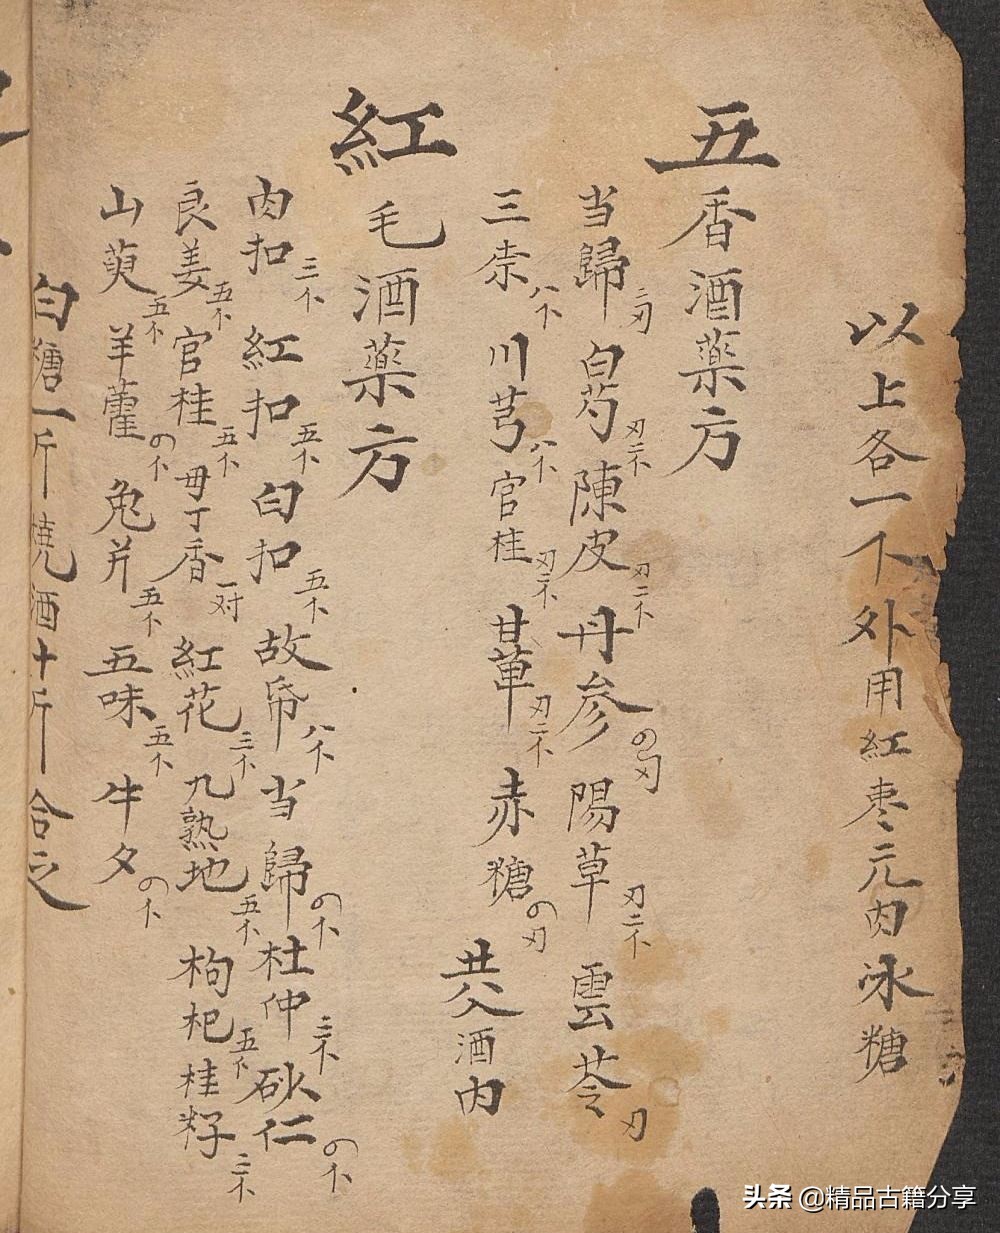 以上各一个外用紅枣元肉冰糖
五香酒藥方
当歸二刃 白芍刃二个 陳皮刃二个 丹参の刃 陽草刃二个 雲苓刃
三柰八个 川芎八个 官桂刃二个 甘草刃二个 赤糖の刃 共入酒内
紅毛酒藥方
肉扣三个 紅扣五个 白扣五个 故帋八个 当歸の个 杜仲二个 砂仁の个
良姜五个 官桂五个 毋丁香一对 紅花三个 九熟地五个 枸杞五个 桂籽二个
山萸五个 羊藿の个 兔片五个 五味五个 牛夕の个
白糖一斤 燒酒十斤 合之
头条 @精品古籍分享